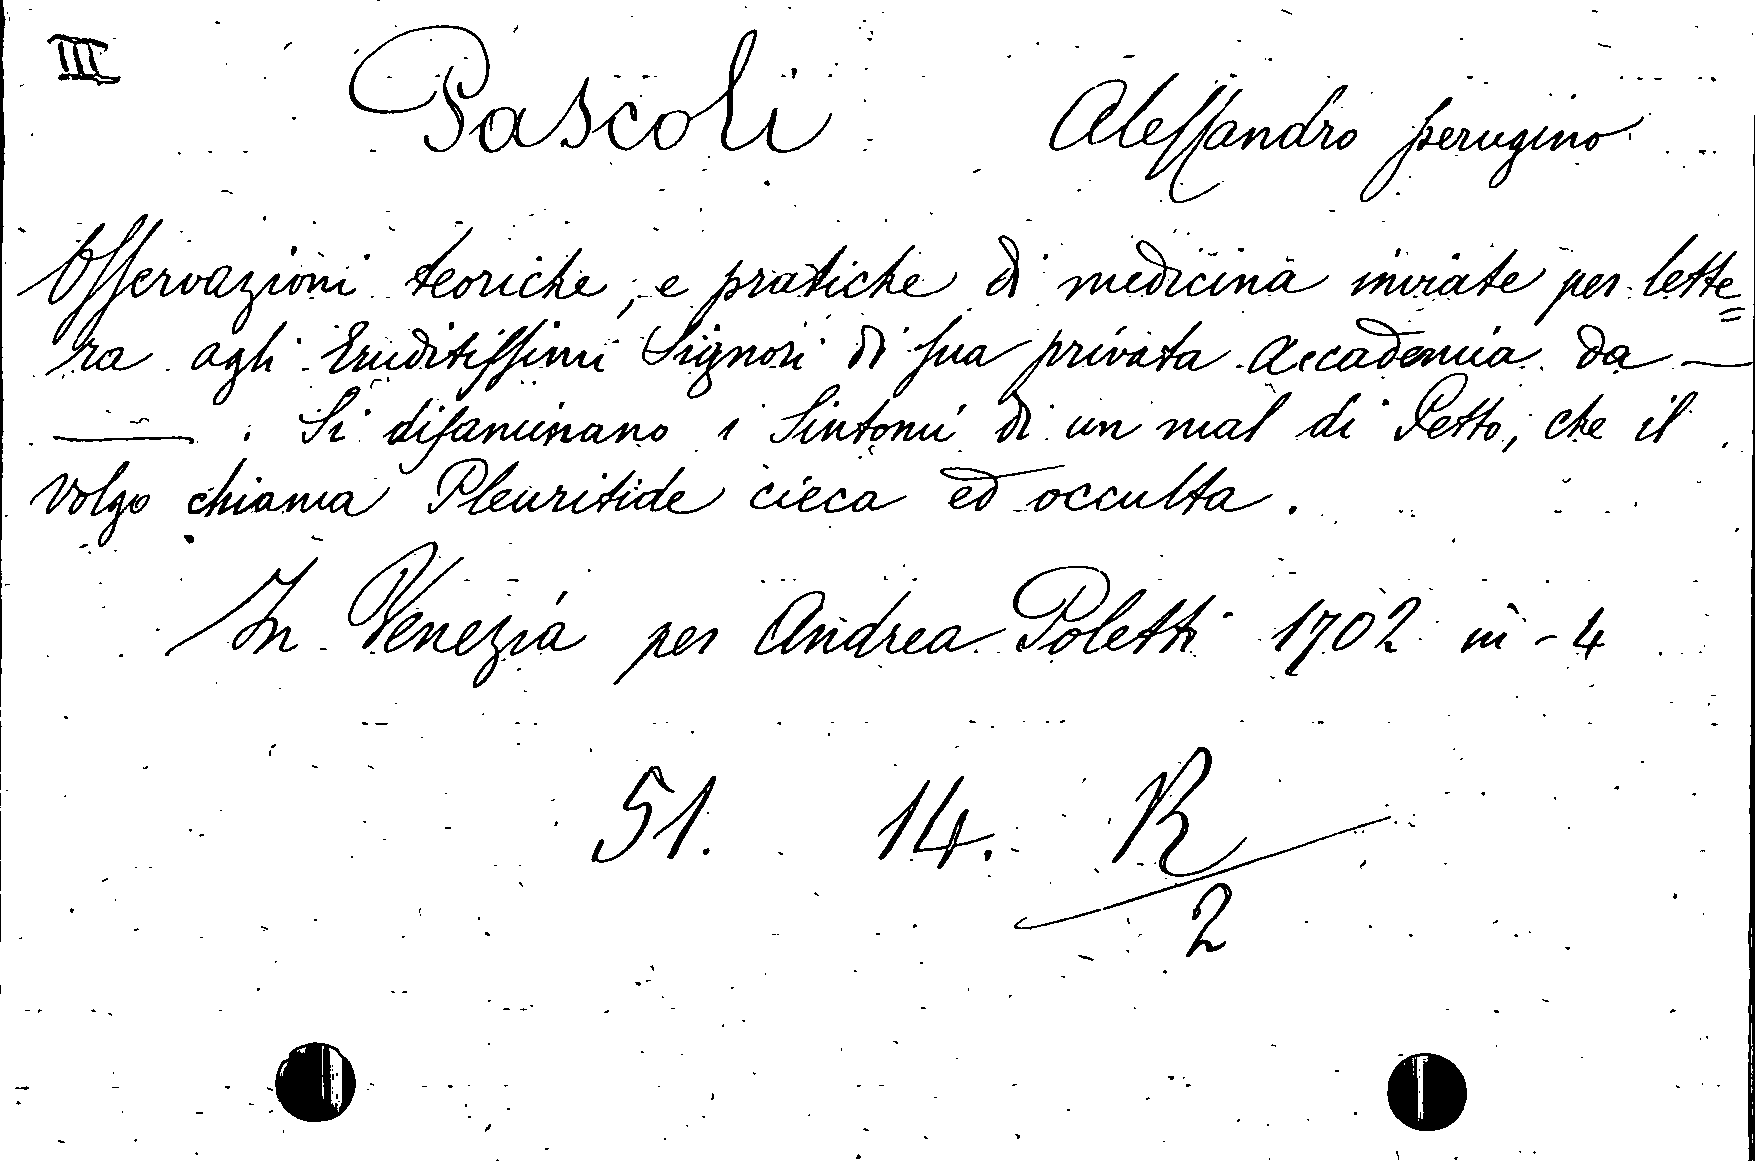 III Pascoli Alessandro perugino
Osservazioni teoriche, e pratiche di medicina inviate per lette=
ra agli Eruditissimi Signori di sua privata Accademia da —
—. Si disaminano i Sintomi di un mal di Petto, che il
volgo chiama Pleuritide cieca ed occulta.
In Venezia per Andrea Poletti 1702 in-4
51. 14. R
2